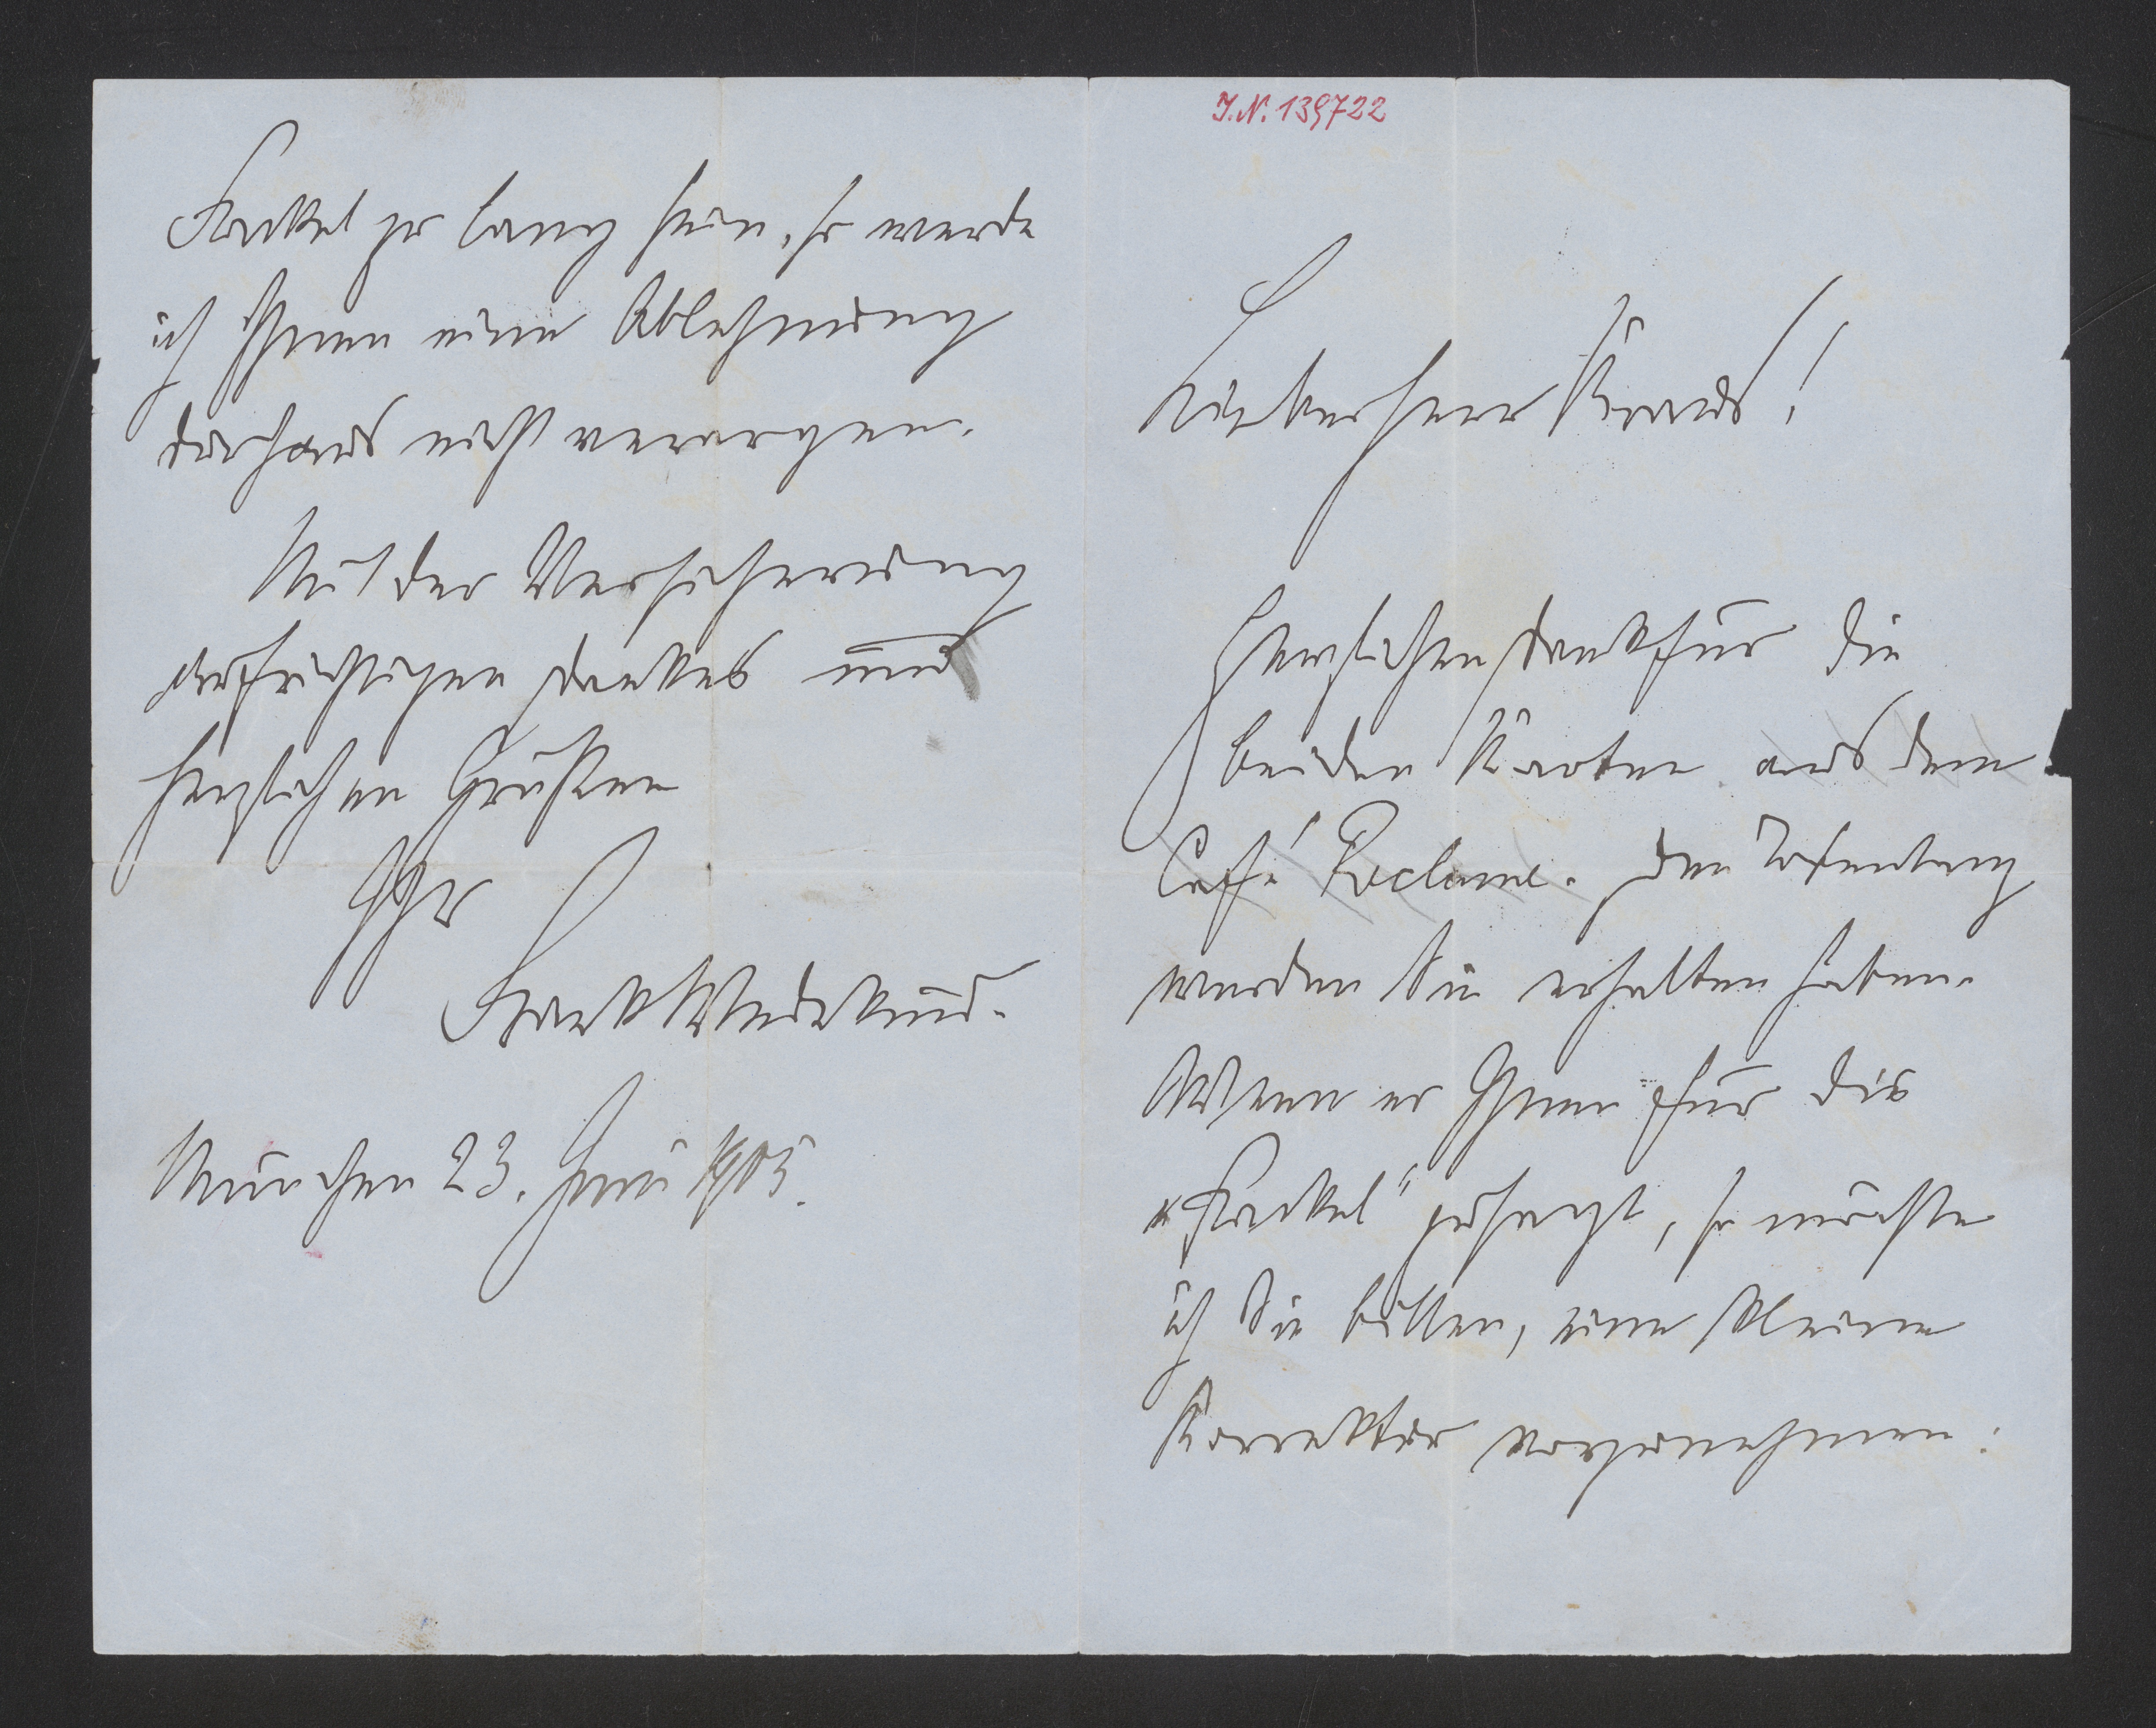 J.N. 139722
Lieber Herr Kraus!
Herzlichen Dank für die
beiden Karten aus dem
Café Reclame. Den Totentanz
werden Sie erhalten haben.
Wenn er Ihnen für die
„Fackel" zusagt, so möchte
ich Sie bitten, eine kleine
Korrektur vorzunehmen:
Fackel zu lang sein, so werde
ich Ihnen eine Ablehnung
durchaus nicht verargen.
Mit der Versicherung
aufrichtigen Dankes und
herzlichen Grüßen
Ihr
Frank Wedekind.
München 23. Juni 1905.